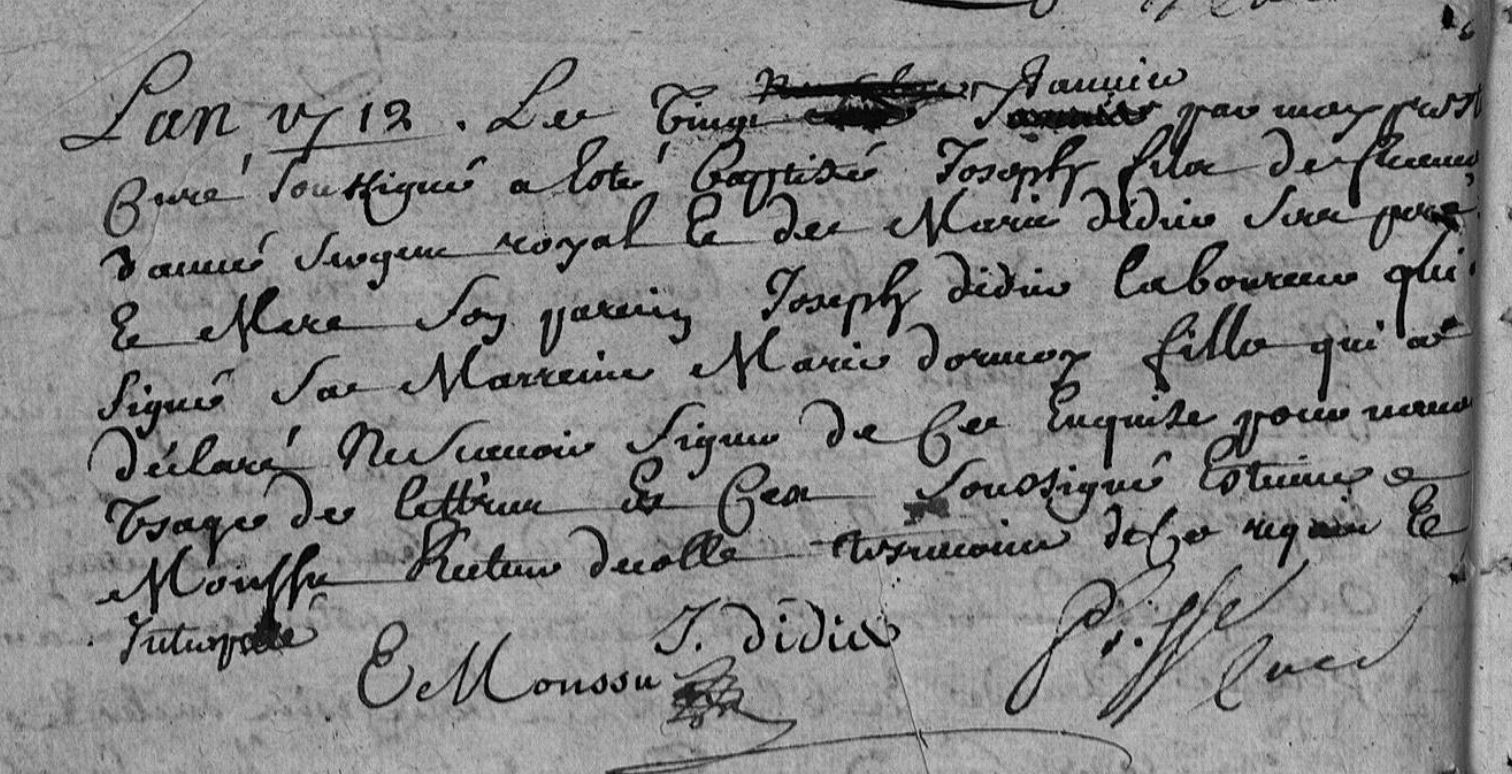 Janvier
Lan 1712. Le Vingt par moy prst
Curé soussigné a esté baptisé Joseph fils de
danné sergent royal et de Marie didier ses pere
et Mere son parein Joseph didier laboureur qui
signé sa Marreine Marie dormoy fille qui a
déclaré Ne scavoir signer de ce Enquise pour
Vsage de lettres Es Ces soussigné Estienne
Moussu Recteur decolle tesmoins de ce requis Et
Interpellé
J. didier
E Moussu
Curé